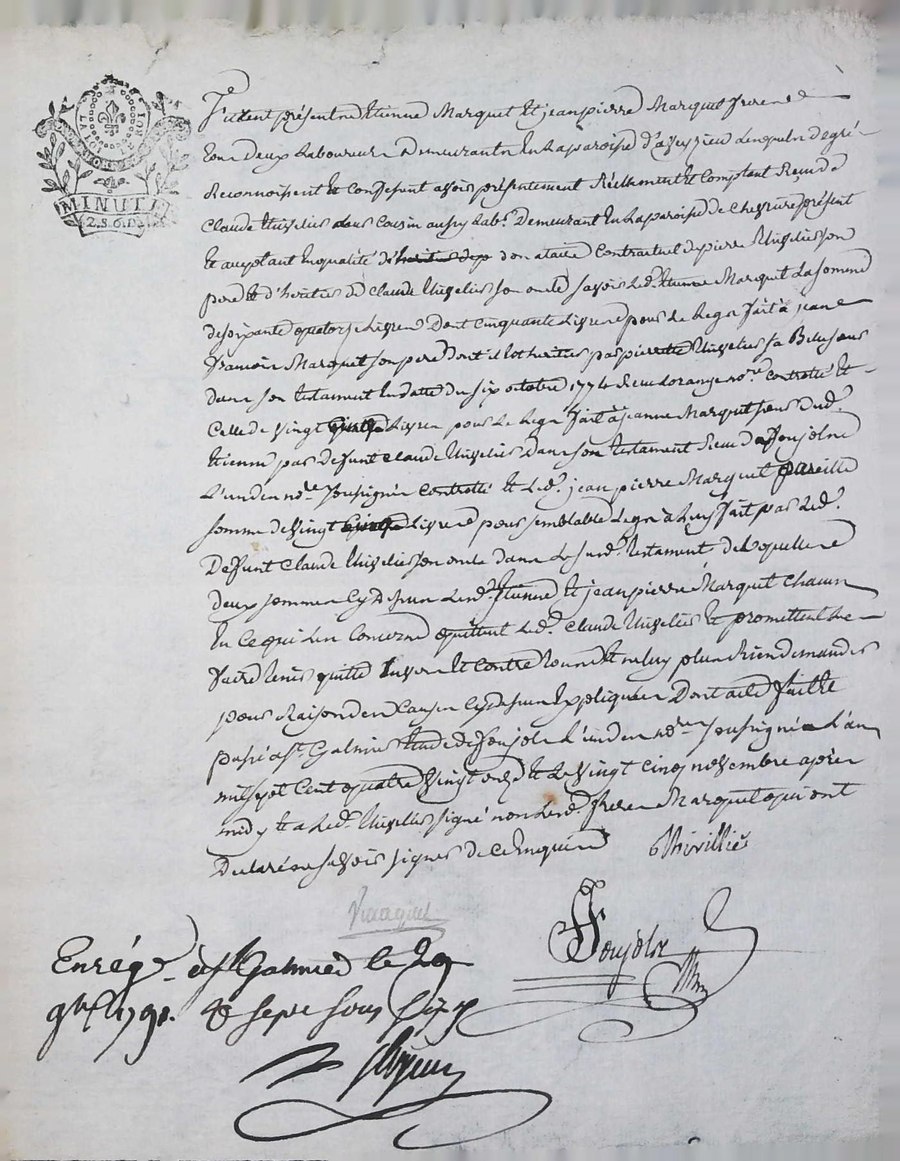 LA LOI
LE ROI
MINUTE
2.S.6.D
Furent présents Etienne Marquet et jean pierre Marquet freres
tous deux Laboureurs Demeurants En la paroisse d'aveyzieu Lesquels de gré
Reconnoissent et Confessent avoir présentement Réellement et Comptant Reçu de
Claude thivelier leur Cousin aussy Labr. Demeurant En la paroisse de Chevrières présent
et acceptant En qualité d'heritier de donataire Contractuel de pierre thivelier son
pere et d'héritier de Claude thivelier son oncle savoir Led. Etienne Marquet La somme
de soixante quatorze Livres Dont Cinquante Livres pour Le Legs fait à jean
francois Marquet son pere dont il est heritier par pierrette thivelier sa Belle soeur
dans son testament En datte du six octobre 1774 Reçu dorange nore. Controllé et
Celle de vingt quatre Livres pour Le Legs fait à jeanne Marquet soeur dud.
Etienne par Defunt Claude thivelier dans son testament Reçu de foujols
L'un des nores. soussignés Controllé et Led. jean pierre Marquet pareille
somme de vingt quatre Livres pour semblable Legs à Luy fait par Led.
Defunt Claude thivelier son oncle dans Le susd. testament De Lesquelles
deux sommes Cy dessus Lesd. Etienne et jean pierre Marquet chacun
En Ce qui Les Concerne quittent Led. Claude thivelier et promettent Le
faire tenir quitte Envers et Contre tous et ne luy plus Rien demander
pour Raison des Causes Cy dessus Expliquées Dont acte fait et
passé à St. Galmier Etude de foujols L'un des nores. soussignés L'an
mil sept Cent quatre vingt onze et Le vingt cinq novembre après
midy et a Led. thivelier signé non Lesd. freres Marquet qui ont
Declaré ne savoir signer de Ce Enquis
thivillier
Foujols
Enrégé. à St. Galmier le 29
9bre 1791. R sept sous